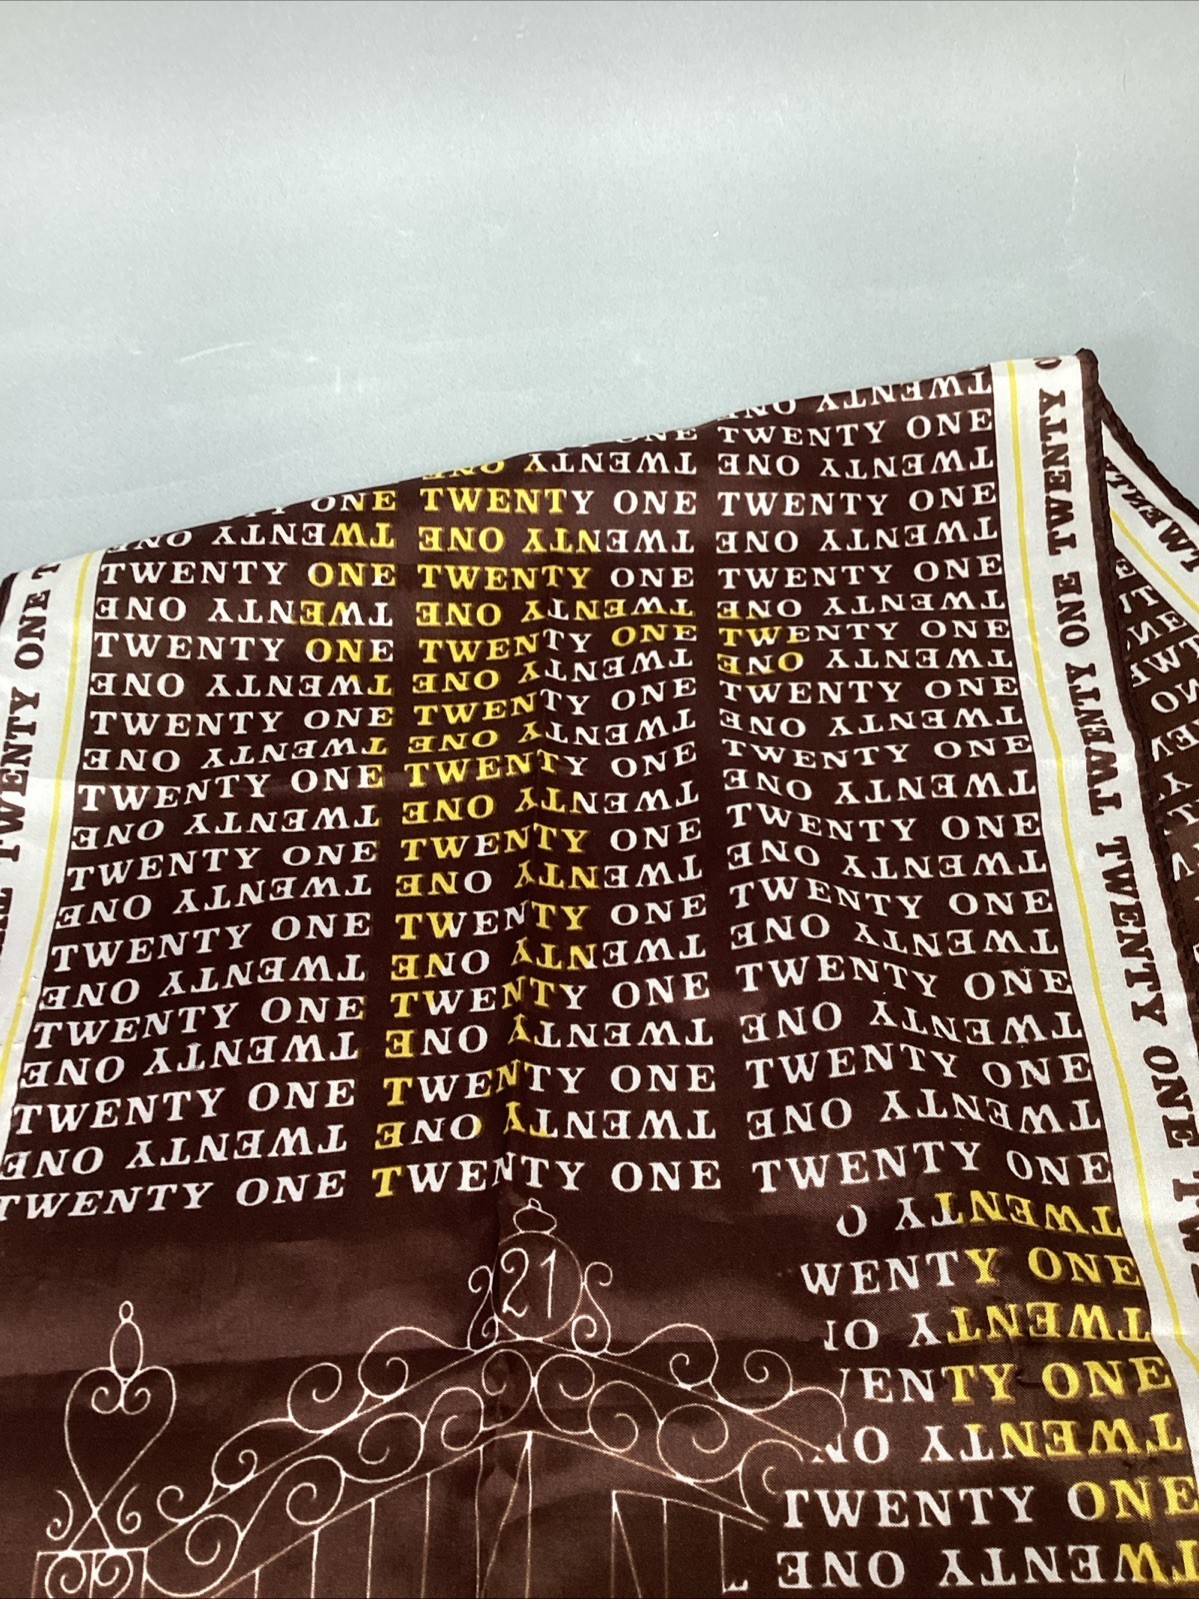 TWENTY
TWENTY ONE
TWENTY ONE TWENTY ONE
ONE TWENTY ONE TWENTY ONE
TWENTY ONE TWENTY ONE TWENTY ONE
TWENTY ONE TWENTY ONE TWENTY ONE
TWENTY ONE TWENTY ONE TWENTY ONE
TWENTY ONE TWENTY ONE TWENTY ONE
TWENTY ONE TWENTY ONE TWENTY ONE
TWENTY ONE TWENTY ONE TWENTY ONE
TWENTY ONE TWENTY ONE TWENTY ONE
TWENTY ONE TWENTY ONE TWENTY ONE
TWENTY ONE TWENTY ONE TWENTY ONE
TWENTY ONE TWENTY ONE TWENTY ONE
TWENTY ONE TWENTY ONE TWENTY ONE
TWENTY ONE TWENTY ONE TWENTY ONE
TWENTY ONE TWENTY ONE TWENTY ONE
TWENTY ONE TWENTY ONE TWENTY ONE
TWENTY ONE TWENTY ONE TWENTY ONE
TWENTY ONE TWENTY ONE TWENTY ONE
TWENTY ONE TWENTY ONE TWENTY ONE
TWENTY ONE TWENTY ONE TWENTY ONE
TWENTY O
WENTY ONE
TWENTY O
ENTY ONE
TWENTY ON
TWENTY ONE
TWENTY ONE
21
TWENTY ONE
TWENTY ONE TWENTY TWENTY ONE